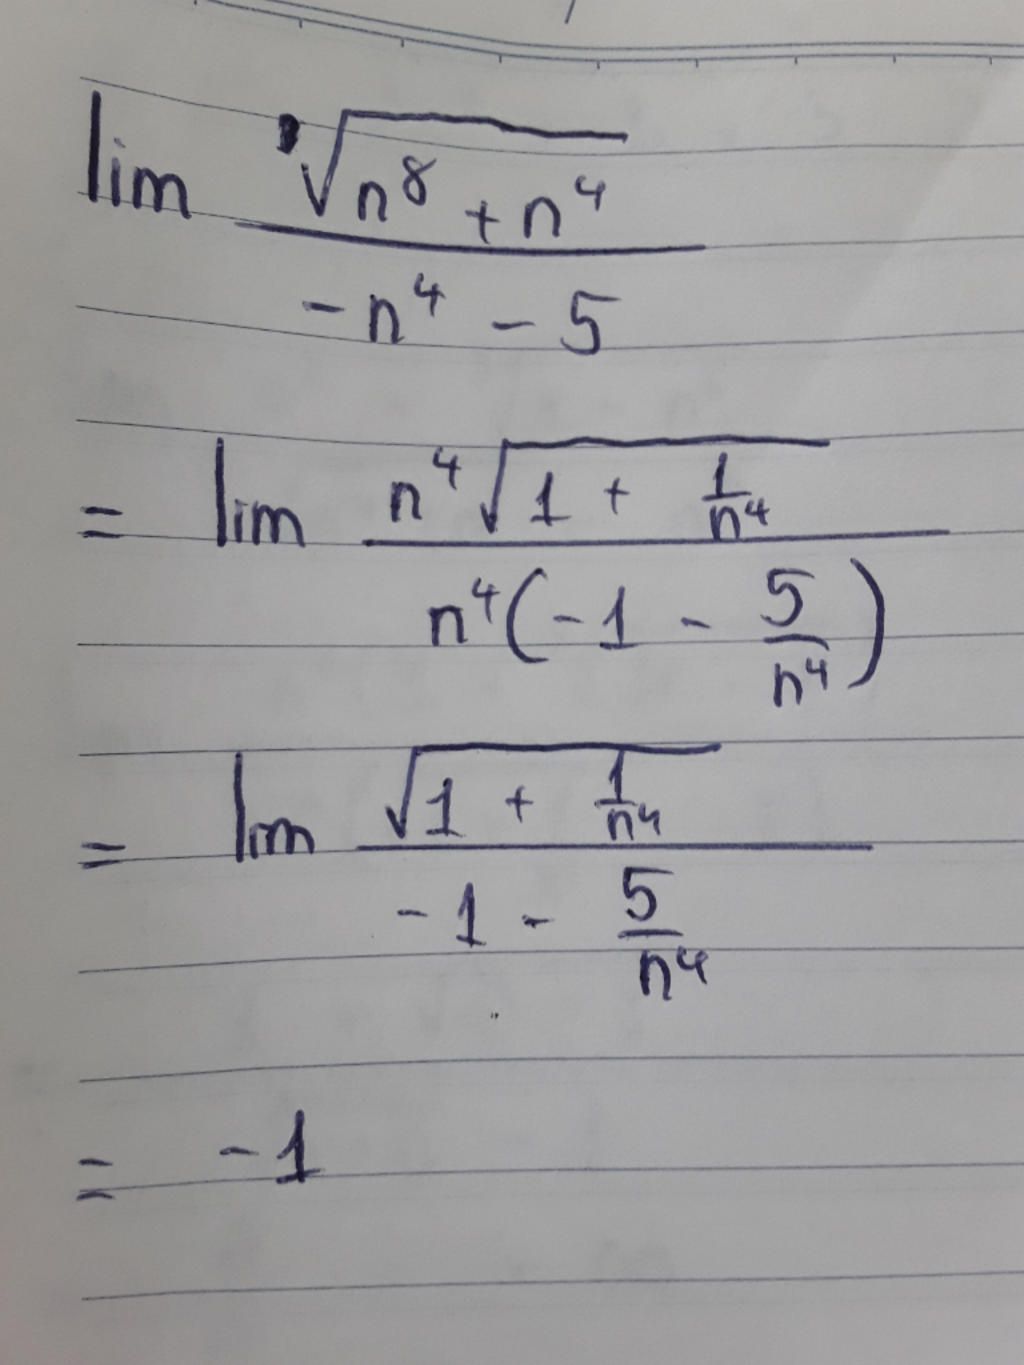 lim √(n⁸ + n⁴) / (-n⁴ - 5)
= lim n⁴√(1 + 1/n⁴) / n⁴(-1 - 5/n⁴)
= lim √(1 + 1/n⁴) / (-1 - 5/n⁴)
= -1